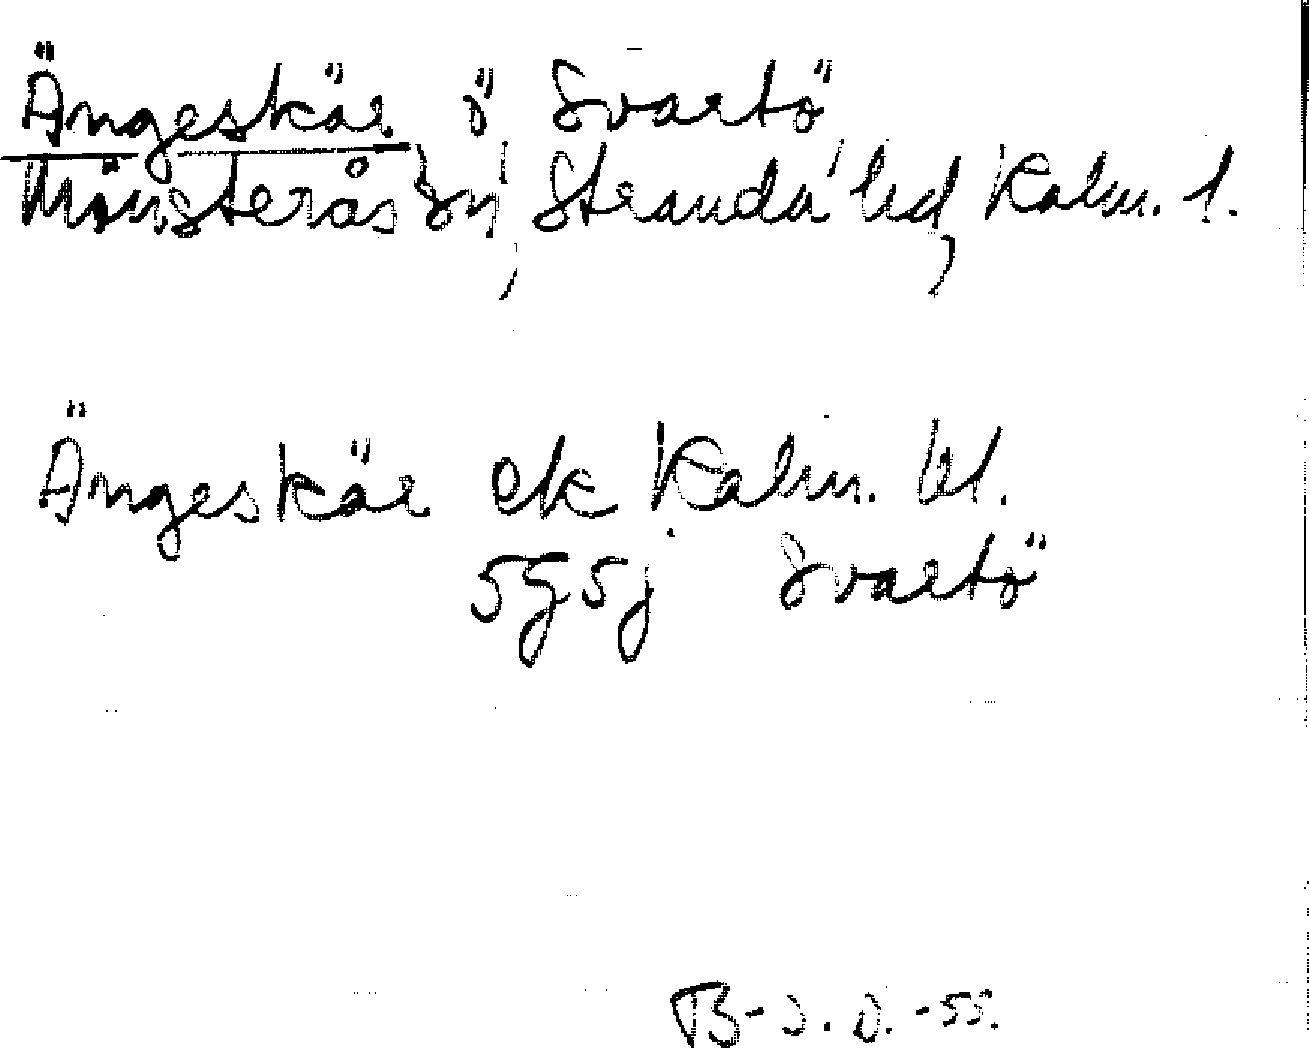 Ängeskär ö Svartö
Mönsterås sn, Stranda hd, Kalm. l.
Ängeskär ek Kalm. bl.
5g5j Svartö
B-J. D. -55.